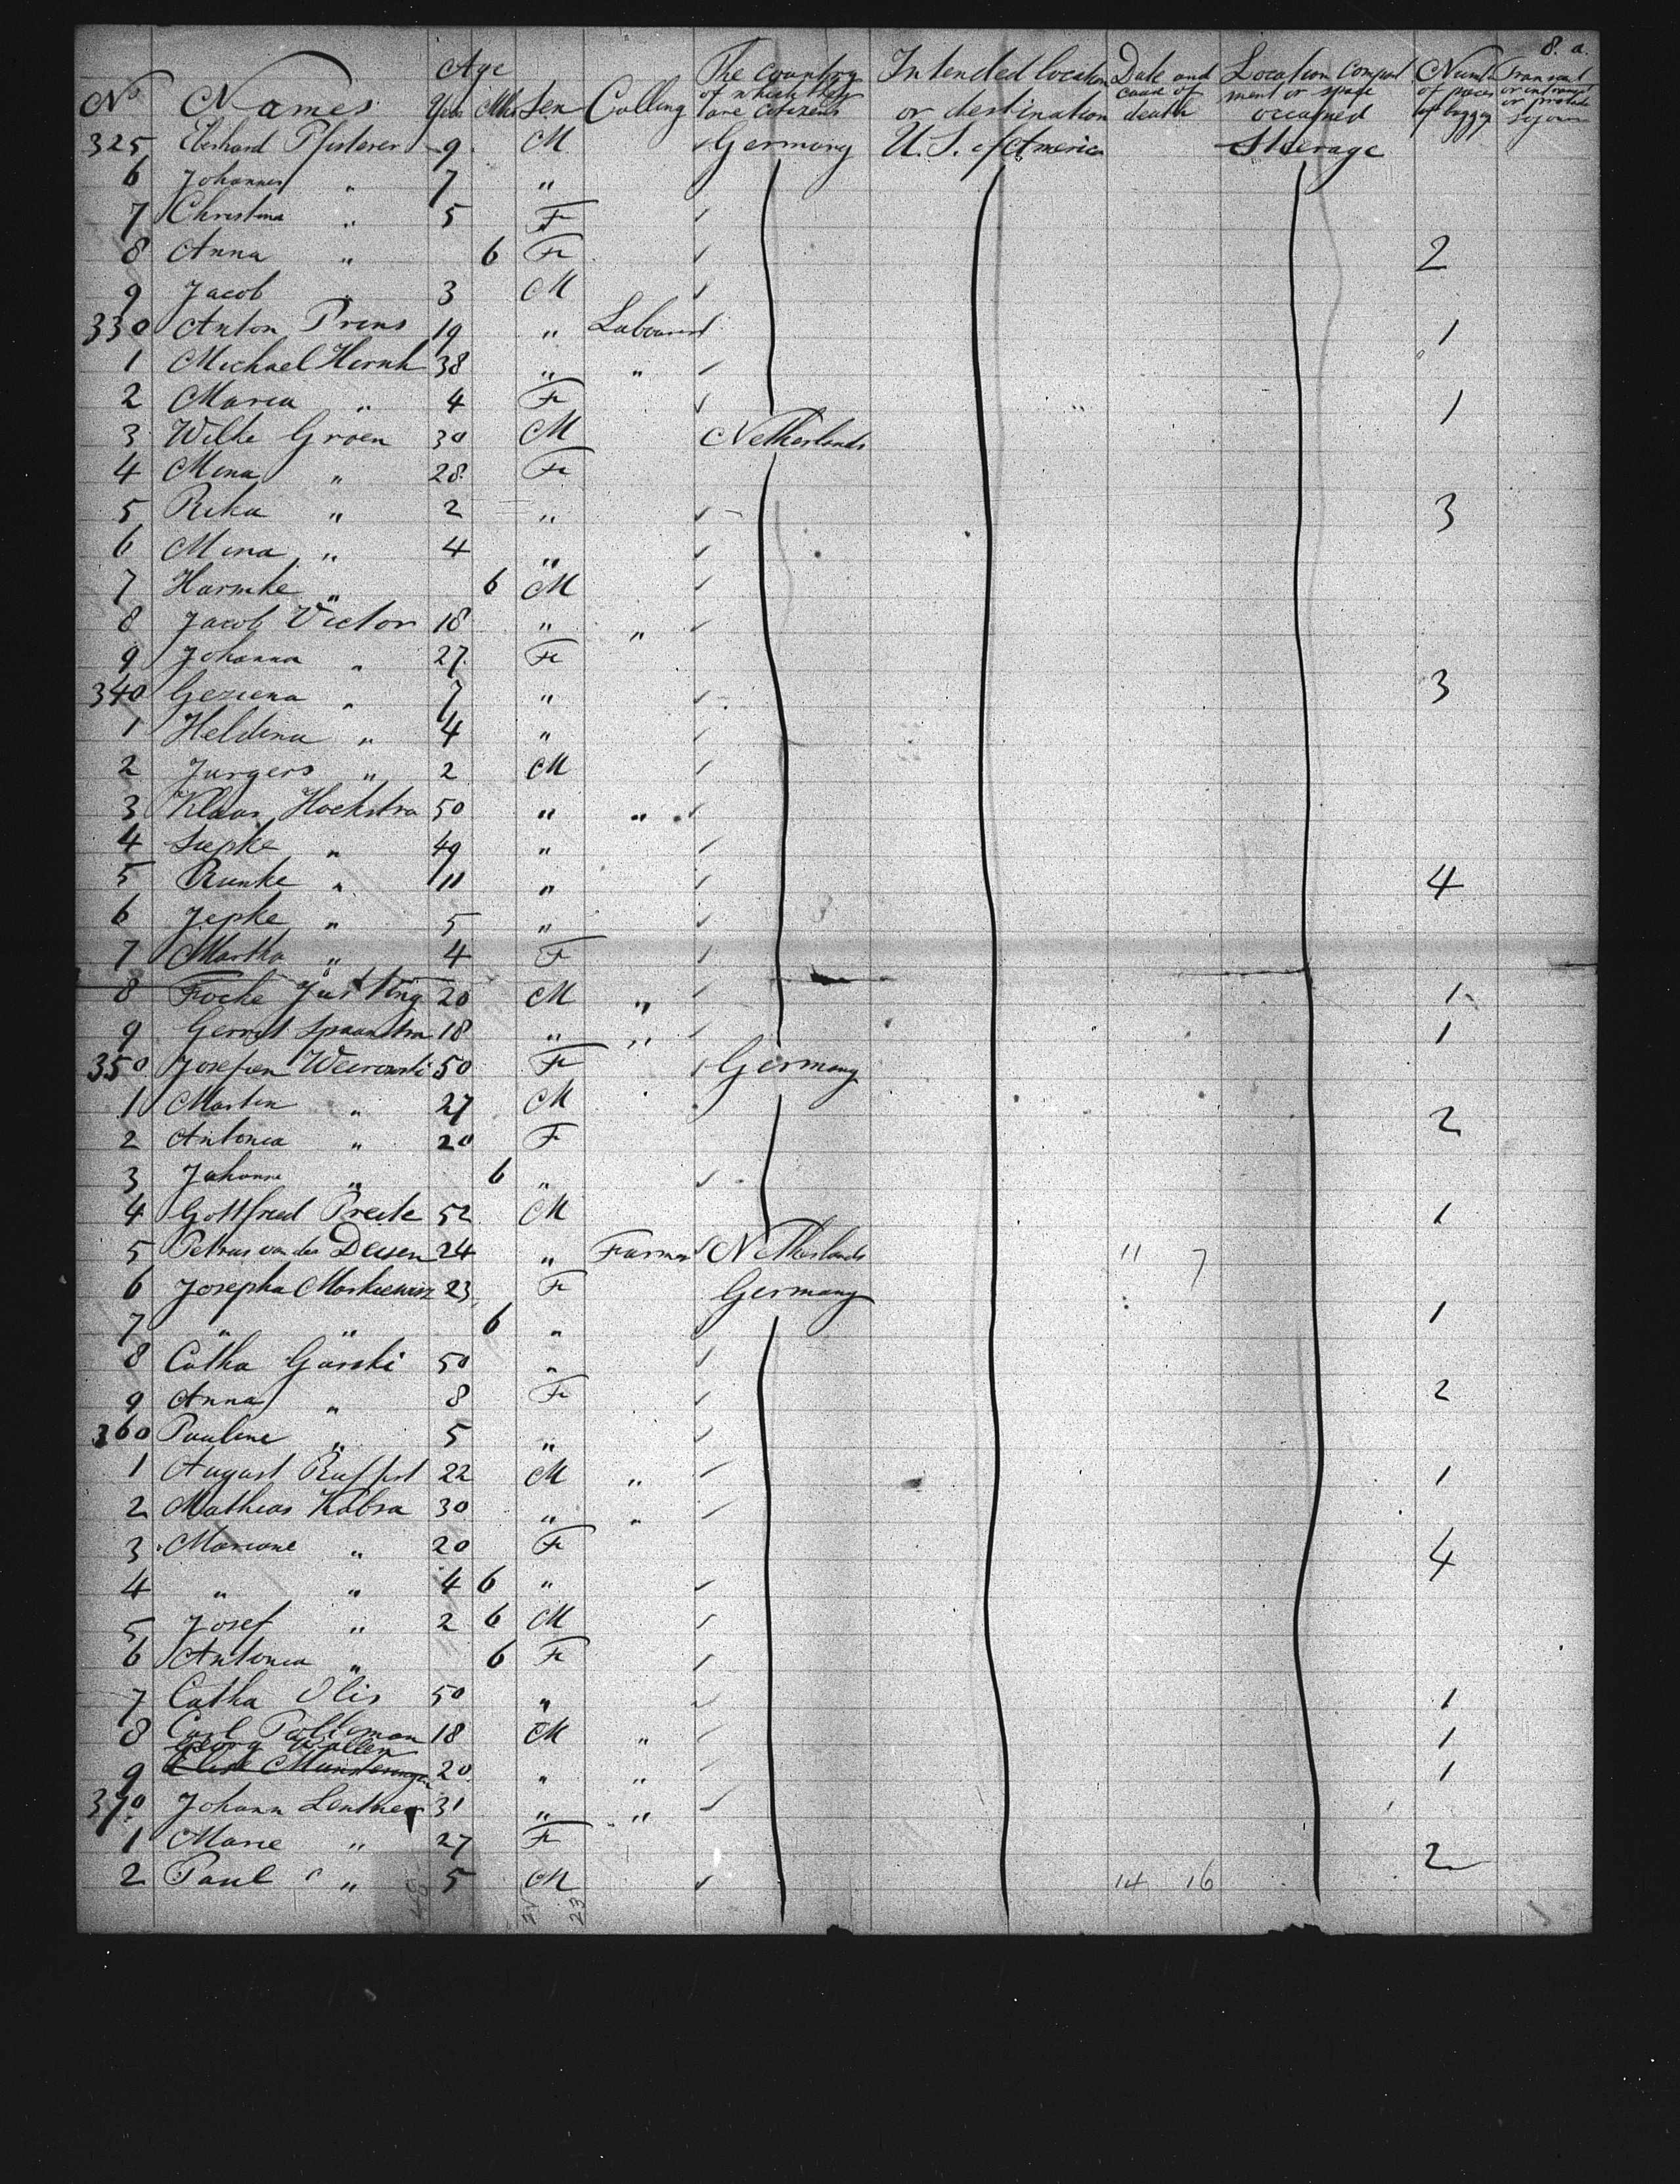 8. a.
No Names Age Years Mths Sex Calling The country of which they are citizens Intended location or destination Date and cause of death Location Compartment or space occupied Number of pieces of baggage Transient or in transit or protracted sojourn
325 Eberhard Pfisterer 9 M Germany U.S. of America Steerage
6 Johannes " 7 "
7 Christina " 5 F
8 Anna " 6 F 2
9 Jacob " 3 M
330 Anton Prins 19 " Labourer 1
1 Michael Hirnh 38 " "
2 Maria " 4 F 1
3 Wilke Groen 30 M Netherlands
4 Mina " 28 F
5 Rika " 2 " 3
6 Mina " 4 "
7 Harmke " 6 M
8 Jacob Victor 18 " "
9 Johanna " 27 F
340 Geziena " 7 " 3
1 Heldina " 4 "
2 Jurgers " 2 M
3 Klaas Hoekstra 50 " "
4 Siepke " 49 "
5 Runke " 11 " 4
6 Jepke " 5 "
7 Martha " 4 F
8 Focke Justing 20 M " 1
9 Gerrit Spaanstra 18 " " 1
350 Josefien 50 F Germany
1 Martin " 27 M 2
2 Antonia " 20 F
3 Johanne " 6 "
4 Gottfried Preite 52 M 1
5 Petrus van der Deisen 24 " Farmer Netherlands 11 7
6 Josepha Markiewisz 23 F Germany
7 " " 6 " 1
8 Catha Gorski 50 "
9 Anna " 8 F 2
360 Pauline " 5 "
1 August Ruffert 22 M " 1
2 Mathias Kobra 30 " "
3 Mariane " 20 F 4
4 " " 4 6 "
5 Josef " 2 6 M
6 Antonia " 6 F
7 Catha Olis 50 " 1
8 Carl Poltoman 18 M " 1
Georg Wallen
9 Elise 20 " " 1
370 Johann Lentner 31 " "
1 Marie " 27 F 2
2 Paul " 5 M 14 16
23